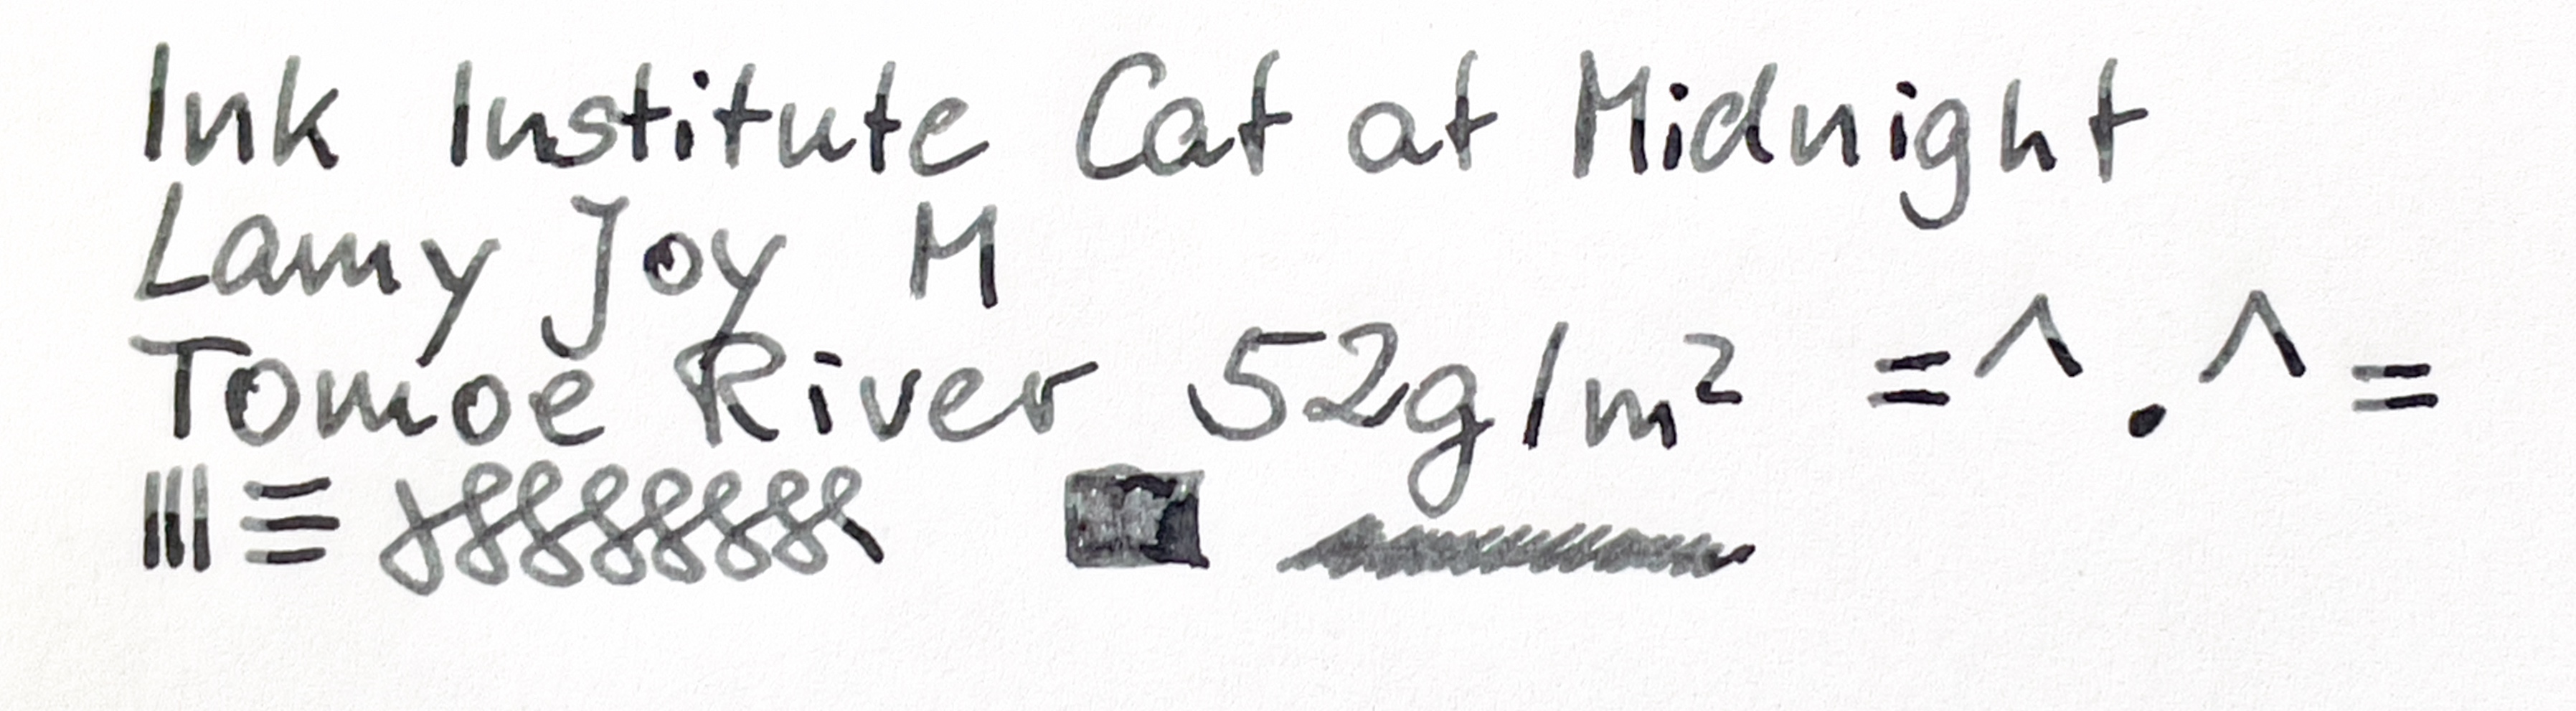 Ink Institute Cat at Midnight
Lamy Joy M
Tomoe River 52g/m² =^.^=